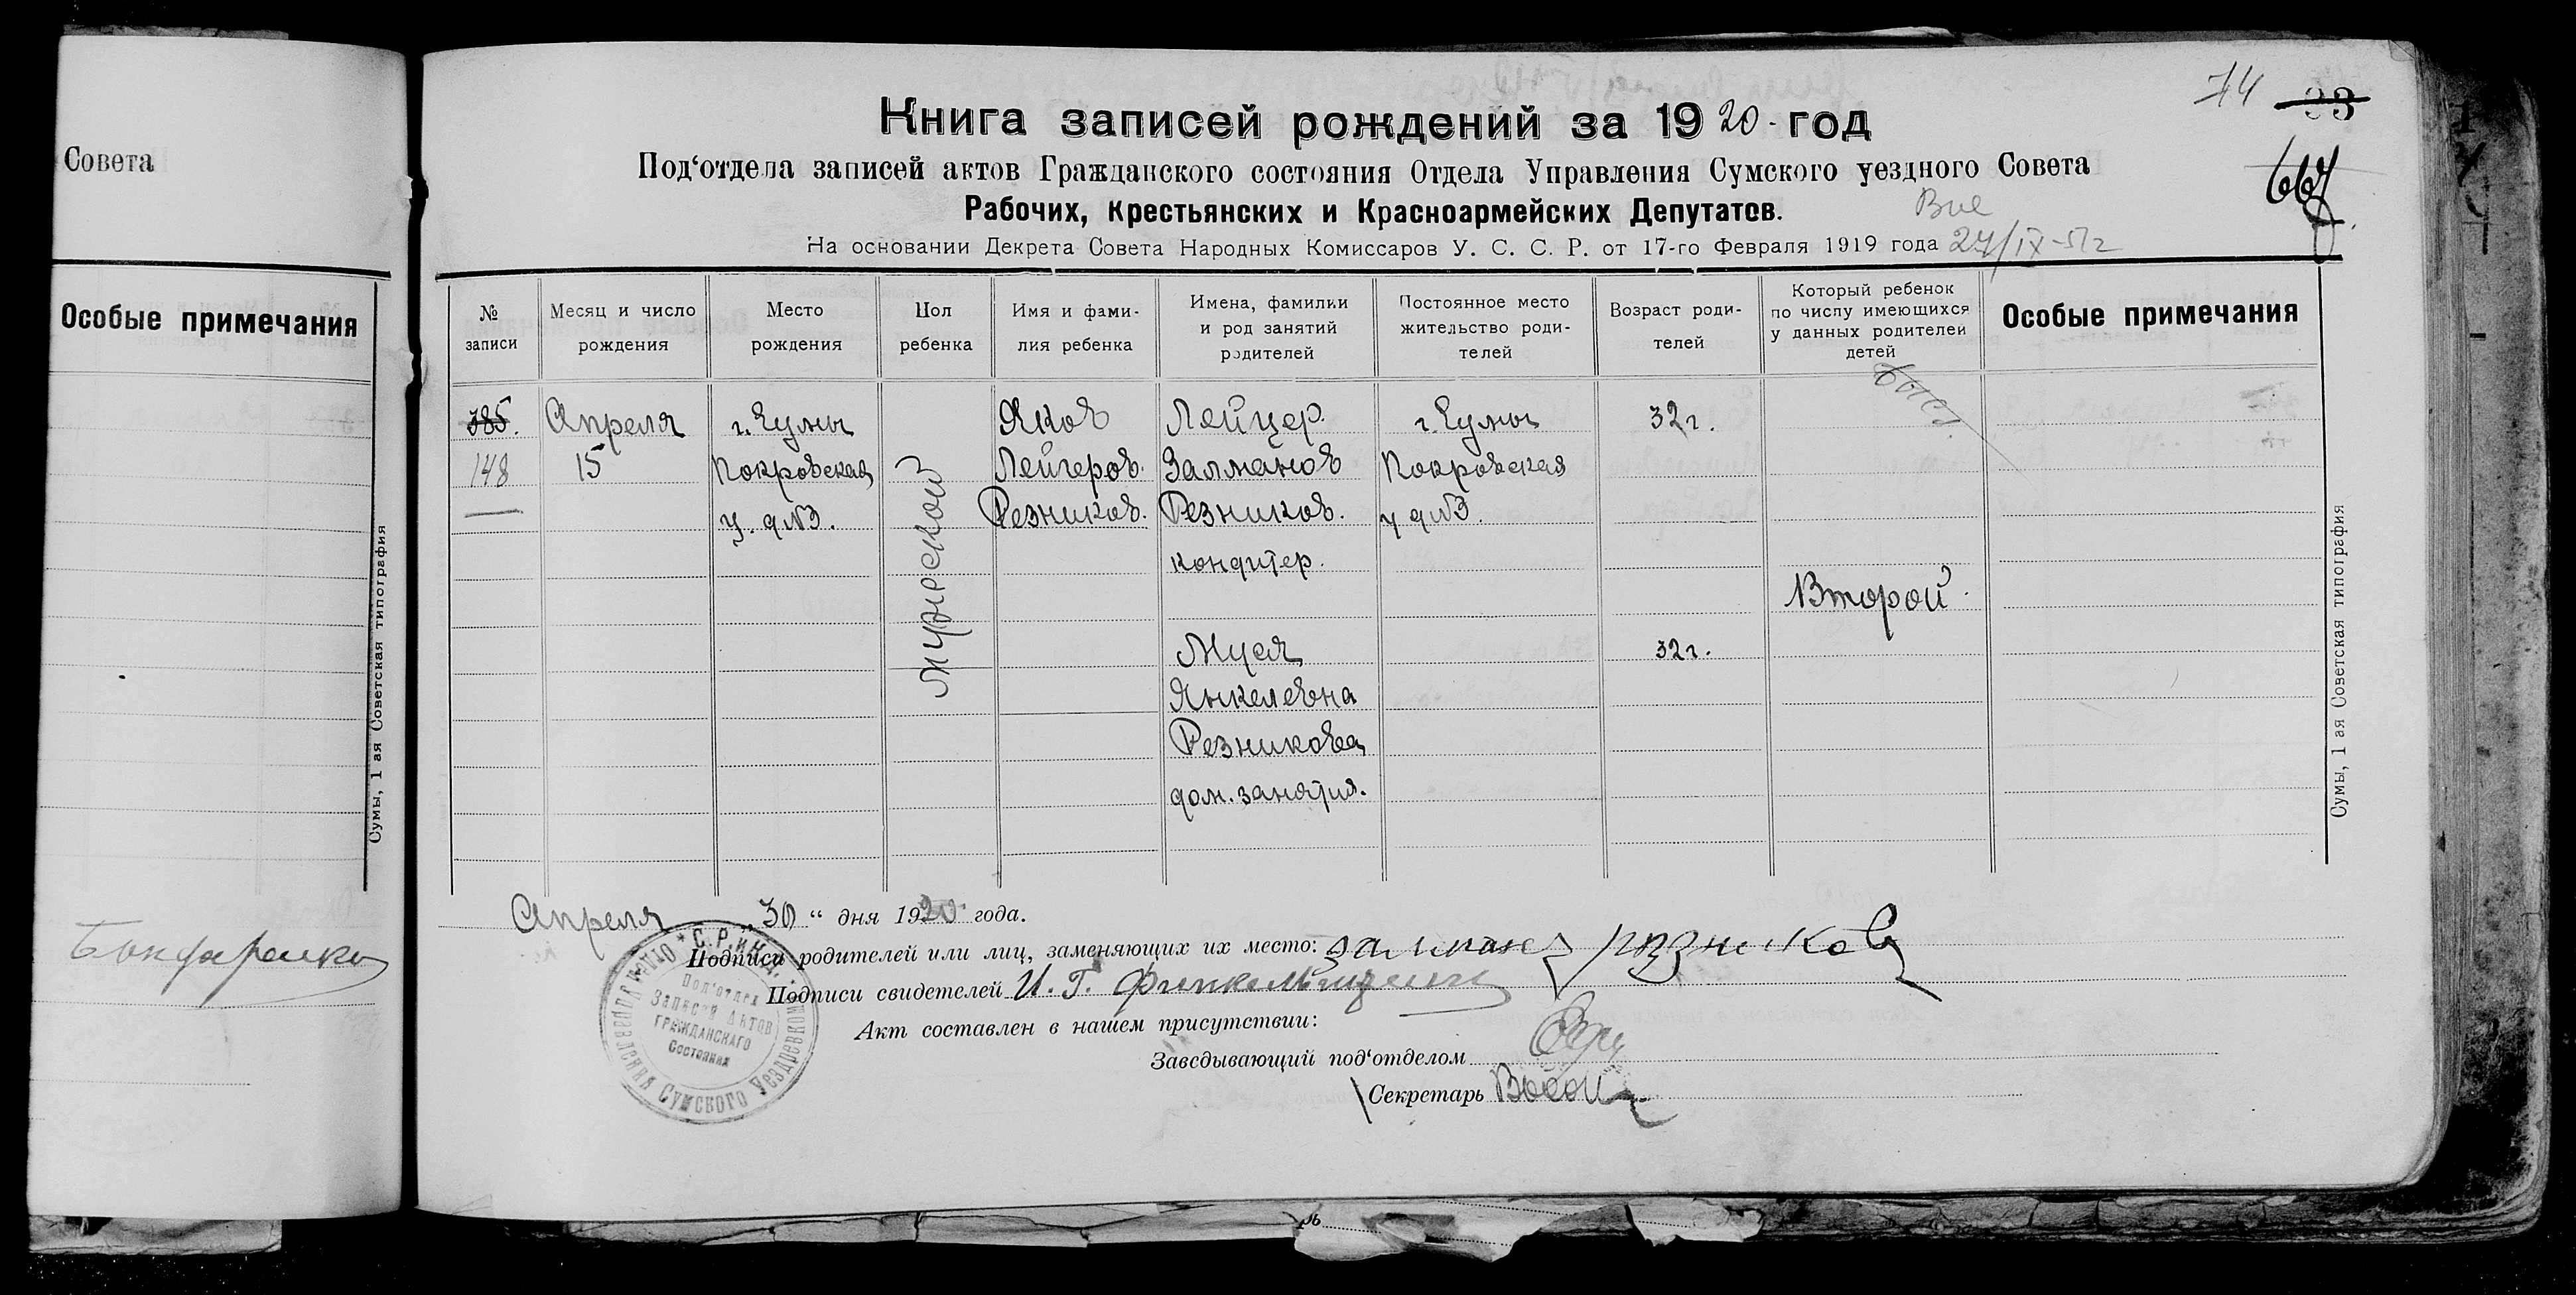 Совета
Особые примечания
Сумы, 1 ая Советская типография
74 33
Книга записей рождений за 1920 год
Под‘отдела записей актов Гражданского состояния Отдела Управления Сумского уездного Совета
667
Рабочих, Крестьянских и Красноармейских Депутатов.
На основании Декрета Совета Народных Комиссаров У. С. С. Р. от 17-го Февраля 1919 года 27/IX-51г
№ записи
Месяц и число рождения
Место рождения
Пол ребенка
Имя и фами-
лия ребенка
Имена, фамилии
и род занятий
родителей
Постоянное место
жительство роди-
телей
Возраст роди-
телей
Который ребенок
по числу имеющихся
у данных родителей
детей
Особые примечания
385.
148
Апреля
15
г. Сумы
Покровская
у. д№3.
мужеской
Яков
Лейзеров.
Резников.
Лейзер.
Залманов
Резников.
кондитер.
Муся
Янкелевна
Резникова
дом. занятия.
г. Сумы
Покровская
у д№3.
32 г.
32 г.
Второй.
Сумы, 1 ая Советская типография
Апреля „30“ дня 1920 года.
Подписи родителей или лиц, заменяющих их место: залман резников
Подписи свидетелей И. Г. Финкельштейн
Акт составлен в нашем присутствии:
Заведывающий под‘отделом
Секретарь
Под‘отдел
Записей Актов
Гражданского
Состояния